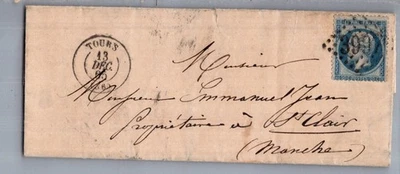 TOURS
13
DÉC.
65
Monsieur
Monsieur Emmanuel Jean
Propriétaire à St Clair
(Manche)